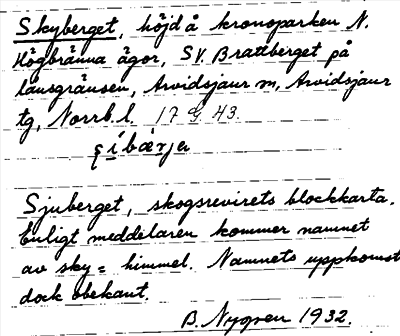 Skyberget, höjd å kronoparken N.
Högbränna ägor, SV. Brattberget på
länsgränsen, Arvidsjaur sn, Arvidsjaur
tg, Norrb. l. 17 G 43.
Sjuberget, skogsrevirets blockkarta.
Enligt meddelaren kommer namnet
av sky = himmel. Namnets uppkomst
dock obekant.
B. Nygren 1932.